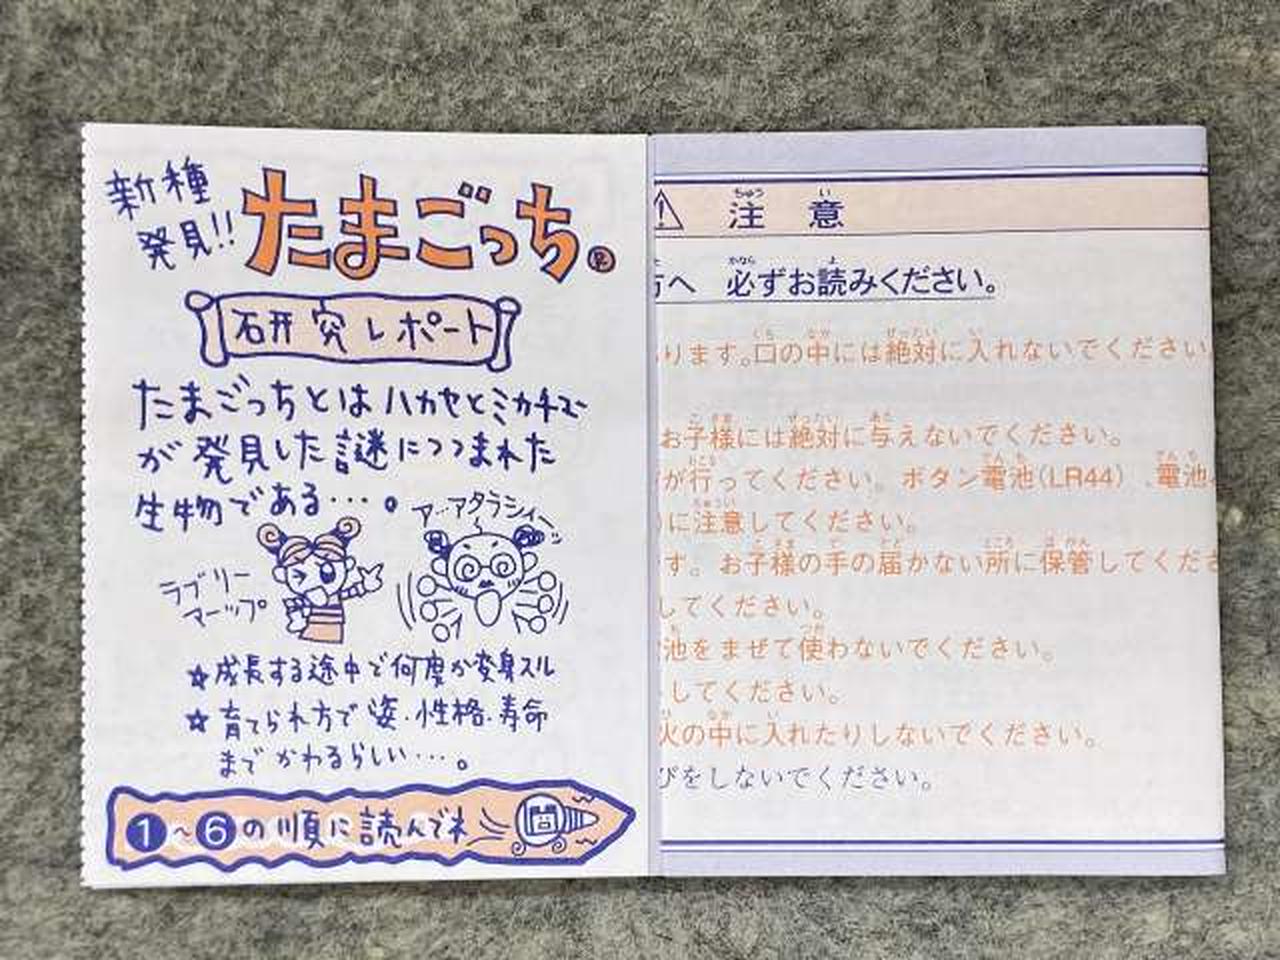 新種
発見!!
たまごっち®
研究レポート
たまごっちとはハカセとミカチュー
が発見した謎につつまれた
生物である…。
ア…アタラシィー
ラブリー
マーップ
☆成長する途中で何度か変身スル
☆育てられ方で姿・性格・寿命
までかわるらしい…。
1~6の順に読んでネ
ちゅう い
注 意
かなら よ
方へ 必ずお読みください。
くち なか ぜったい い
ります。口の中には絶対に入れないでください
こさま ぜったい あた
お子様には絶対に与えないでください。
おこな でんち でんち
が行ってください。ボタン電池(LR44)、電池
ちゅうい
に注意してください。
こさま て とど ところ ほかん
す。お子様の手の届かない所に保管してくださ
してください。
ち つか
池をまぜて使わないでください。
してください。
ひ なか い
火の中に入れたりしないでください。
びをしないでください。